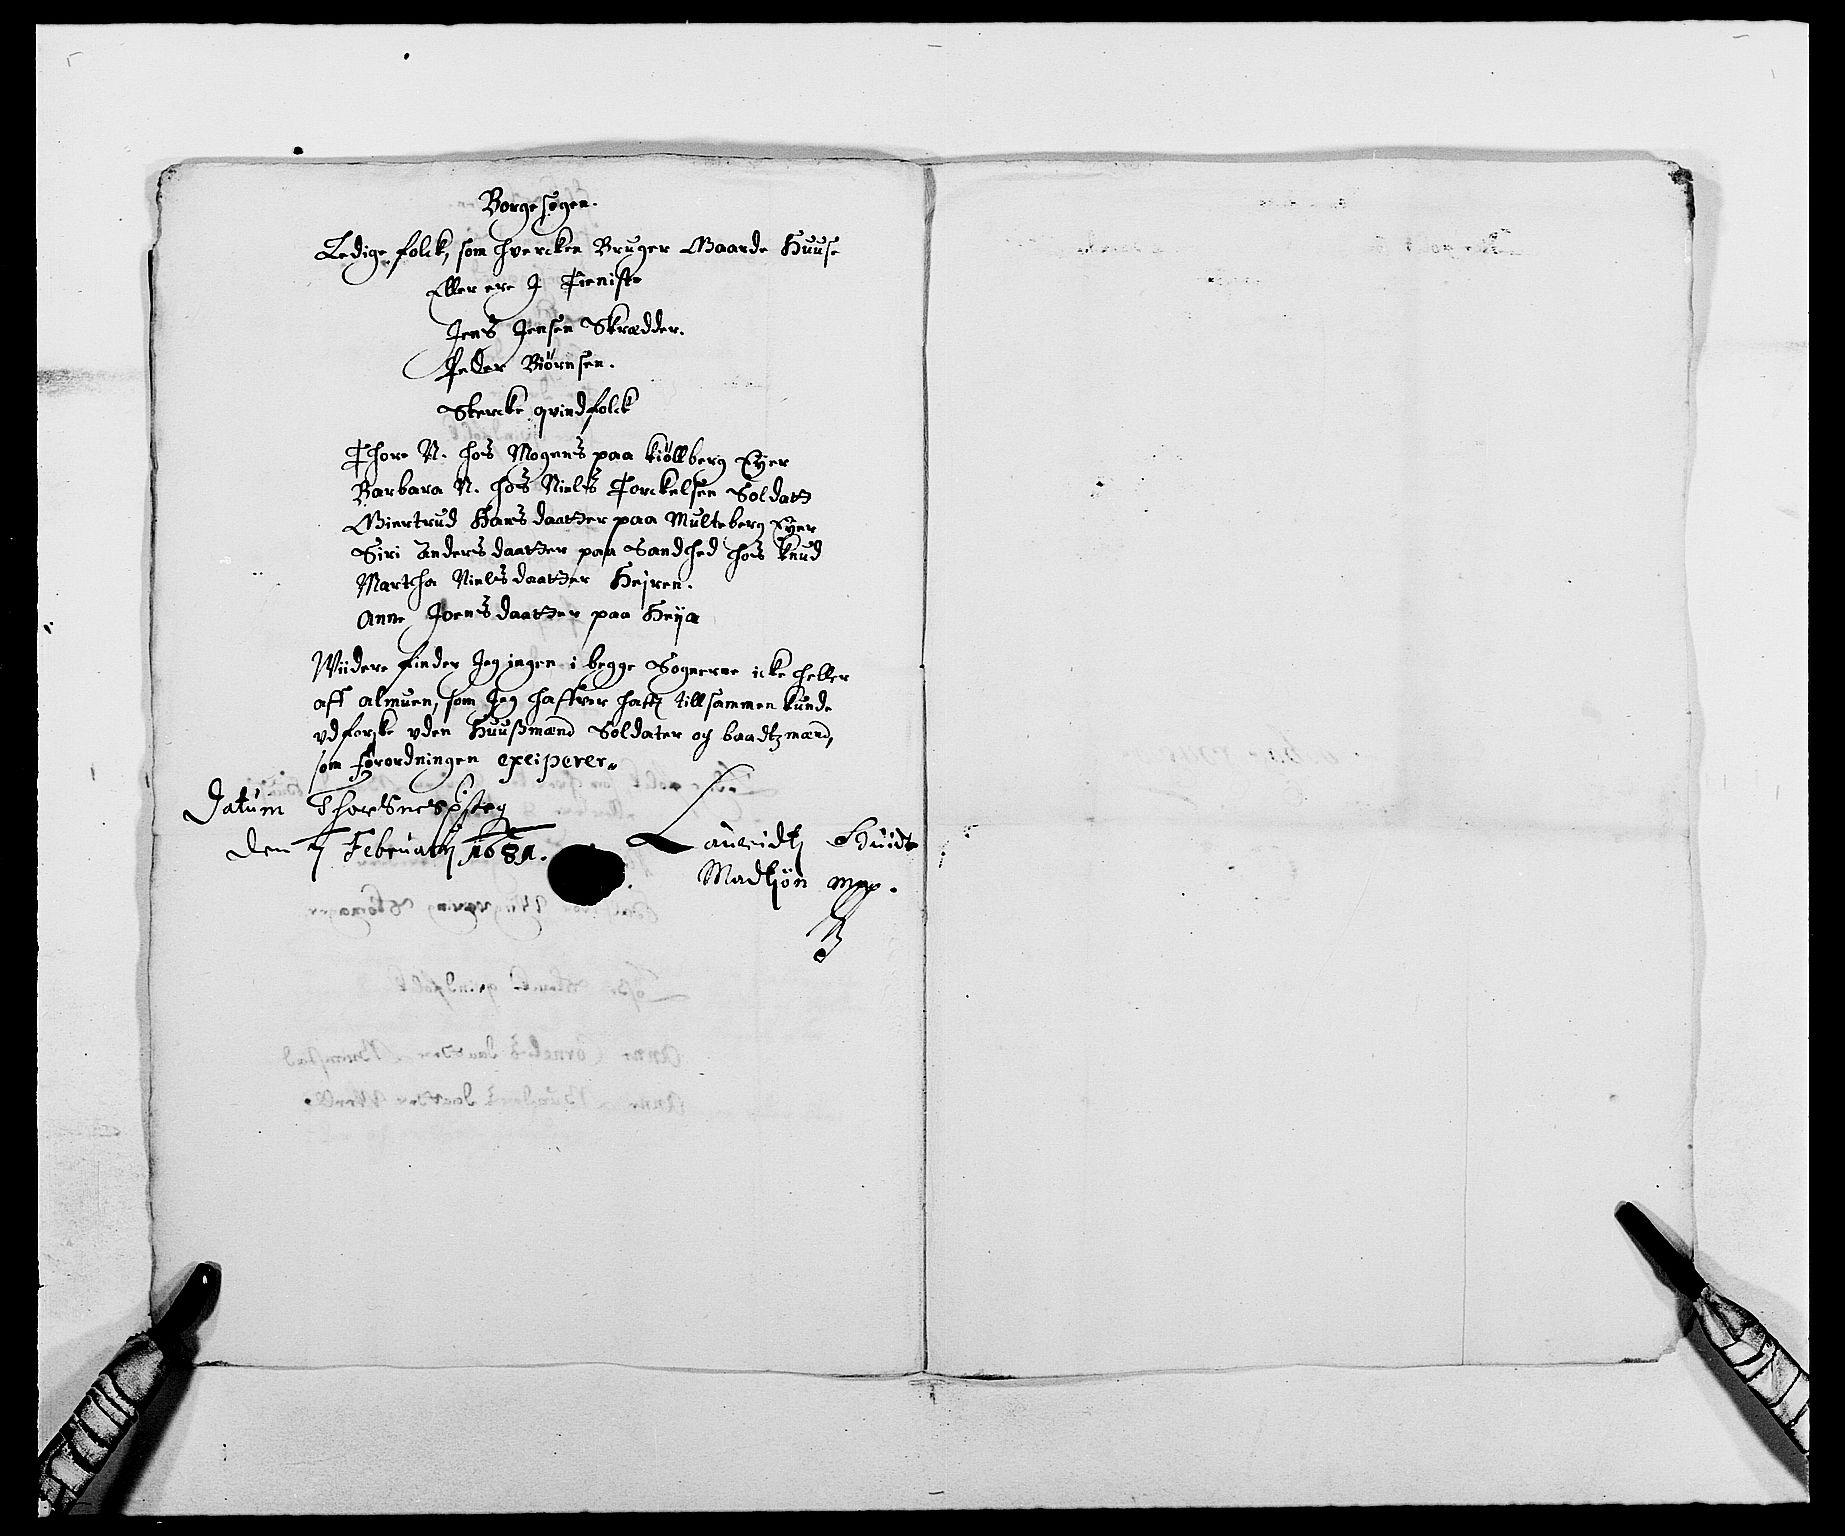 Borge sogen.
Ledige folck, som hvercken Bruger Gaarde Huuse
Eller ere J Tieniste
Jens Jensen Skrædder.
Peder Biörnsen.
Stercke qvindfolck
Thore N. hos Mogens paa kiöllberg Eÿer
Barbara N. hos Niels Torckelsen Soldatt
Giertrud Hansdaatter paa Multeberg Eÿer
Siri Andersdaatter paa Sandhed hos knud
Martha Nielsdaatter Hejren.
Anne Joensdaatter paa Heÿa
Widere finder Jeg ingen i begge Sognerne icke heller
aff almuen, som Jeg haffver hatt tillsammen kunde
udforske uden Huußmænd Soldater og baadtzmænd,
som forordningen exciperer
Datum Thorsnes
den 7 Februarij 1681.
Lauridtz Huidt
Madtzön mpp.